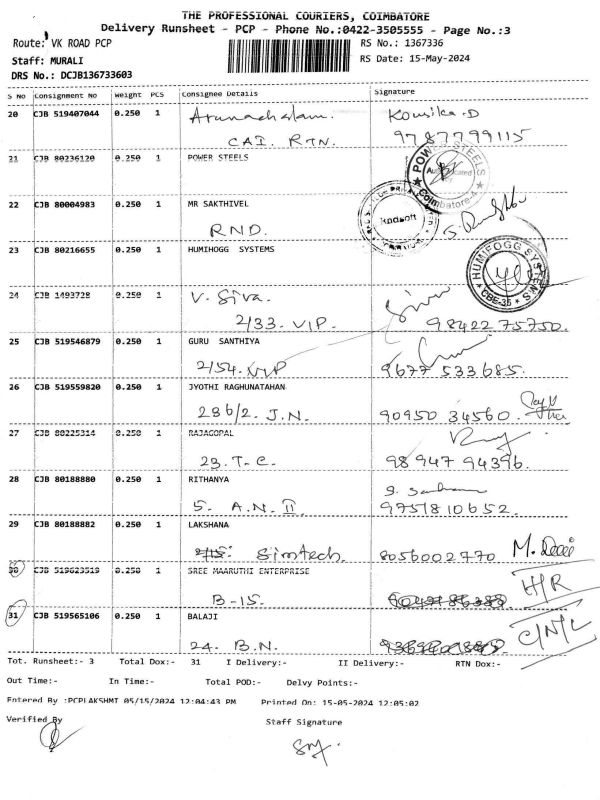 THE PROFESSIONAL COURIERS, COIMBATORE
Delivery Runsheet - PCP - Phone No.:0422-3505555 - Page No.:3
Route: VK ROAD PCP RS No.: 1367336
Staff: MURALI RS Date: 15-May-2024
DRS No.: DCJB136733603
S No Consignment No Weight PCS Consignee Details Signature
20 CJB 519407044 0.250 1 Arunachalam. Kousika.D
CAI. RTN. 9787799115
21 CJB 80236120 0.250 1 POWER STEELS
POWER STEELS
Coimbatore-4
22 CJB 80004983 0.250 1 MR SAKTHIVEL
RND.
23 CJB 80216655 0.250 1 HUMIHOGG SYSTEMS
HUMIFOGG SYSTEMS
CBE-35
24 CJB 1493728 0.250 1 V. Siva.
2/33. VIP. 98422 75750.
25 CJB 519546879 0.250 1 GURU SANTHIYA
2/54. VIP 9677 533685.
26 CJB 519559820 0.250 1 JYOTHI RAGHUNATAHAN
286/2. J.N. 90950 34560.
27 CJB 80225314 0.250 1 RAJAGOPAL
23. T.C. 98 947 94396.
28 CJB 80188880 0.250 1 RITHANYA
5. A.N. II 9751810652.
29 CJB 80188882 0.250 1 LAKSHANA
Simtech. 8056002770 M. Devi
30 CJB 519623519 0.250 1 SREE MAARUTHI ENTERPRISE
B-15. H/R
31 CJB 519565106 0.250 1 BALAJI
24. B.N. C/N/L
Tot. Runsheet:- 3 Total Dox:- 31 I Delivery:- II Delivery:- RTN Dox:-
Out Time:- In Time:- Total POD:- Delvy Points:-
Entered By :PCPLAKSHMI 05/15/2024 12:04:43 PM Printed On: 15-05-2024 12:05:02
Verified By Staff Signature